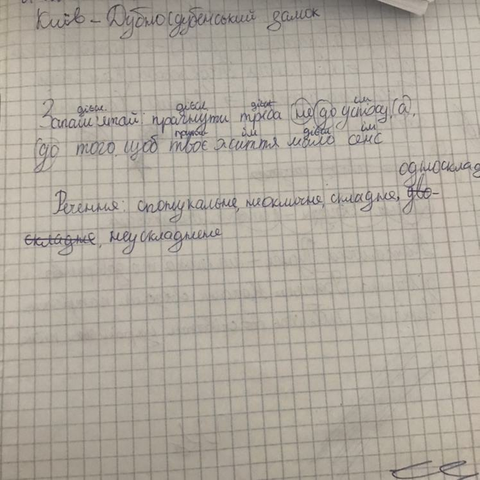 Київ - Дубно (дубенський замок
дієсл. дієсл дієсл ім
Запам'ятай прагнути треба не до успіху, (а),
прикм ім дієсл ім
(до того, щоб твоє життя мало сенс
односклад
Речення: спонукальне, неоклична, складне, дво-
складне, неускладнене